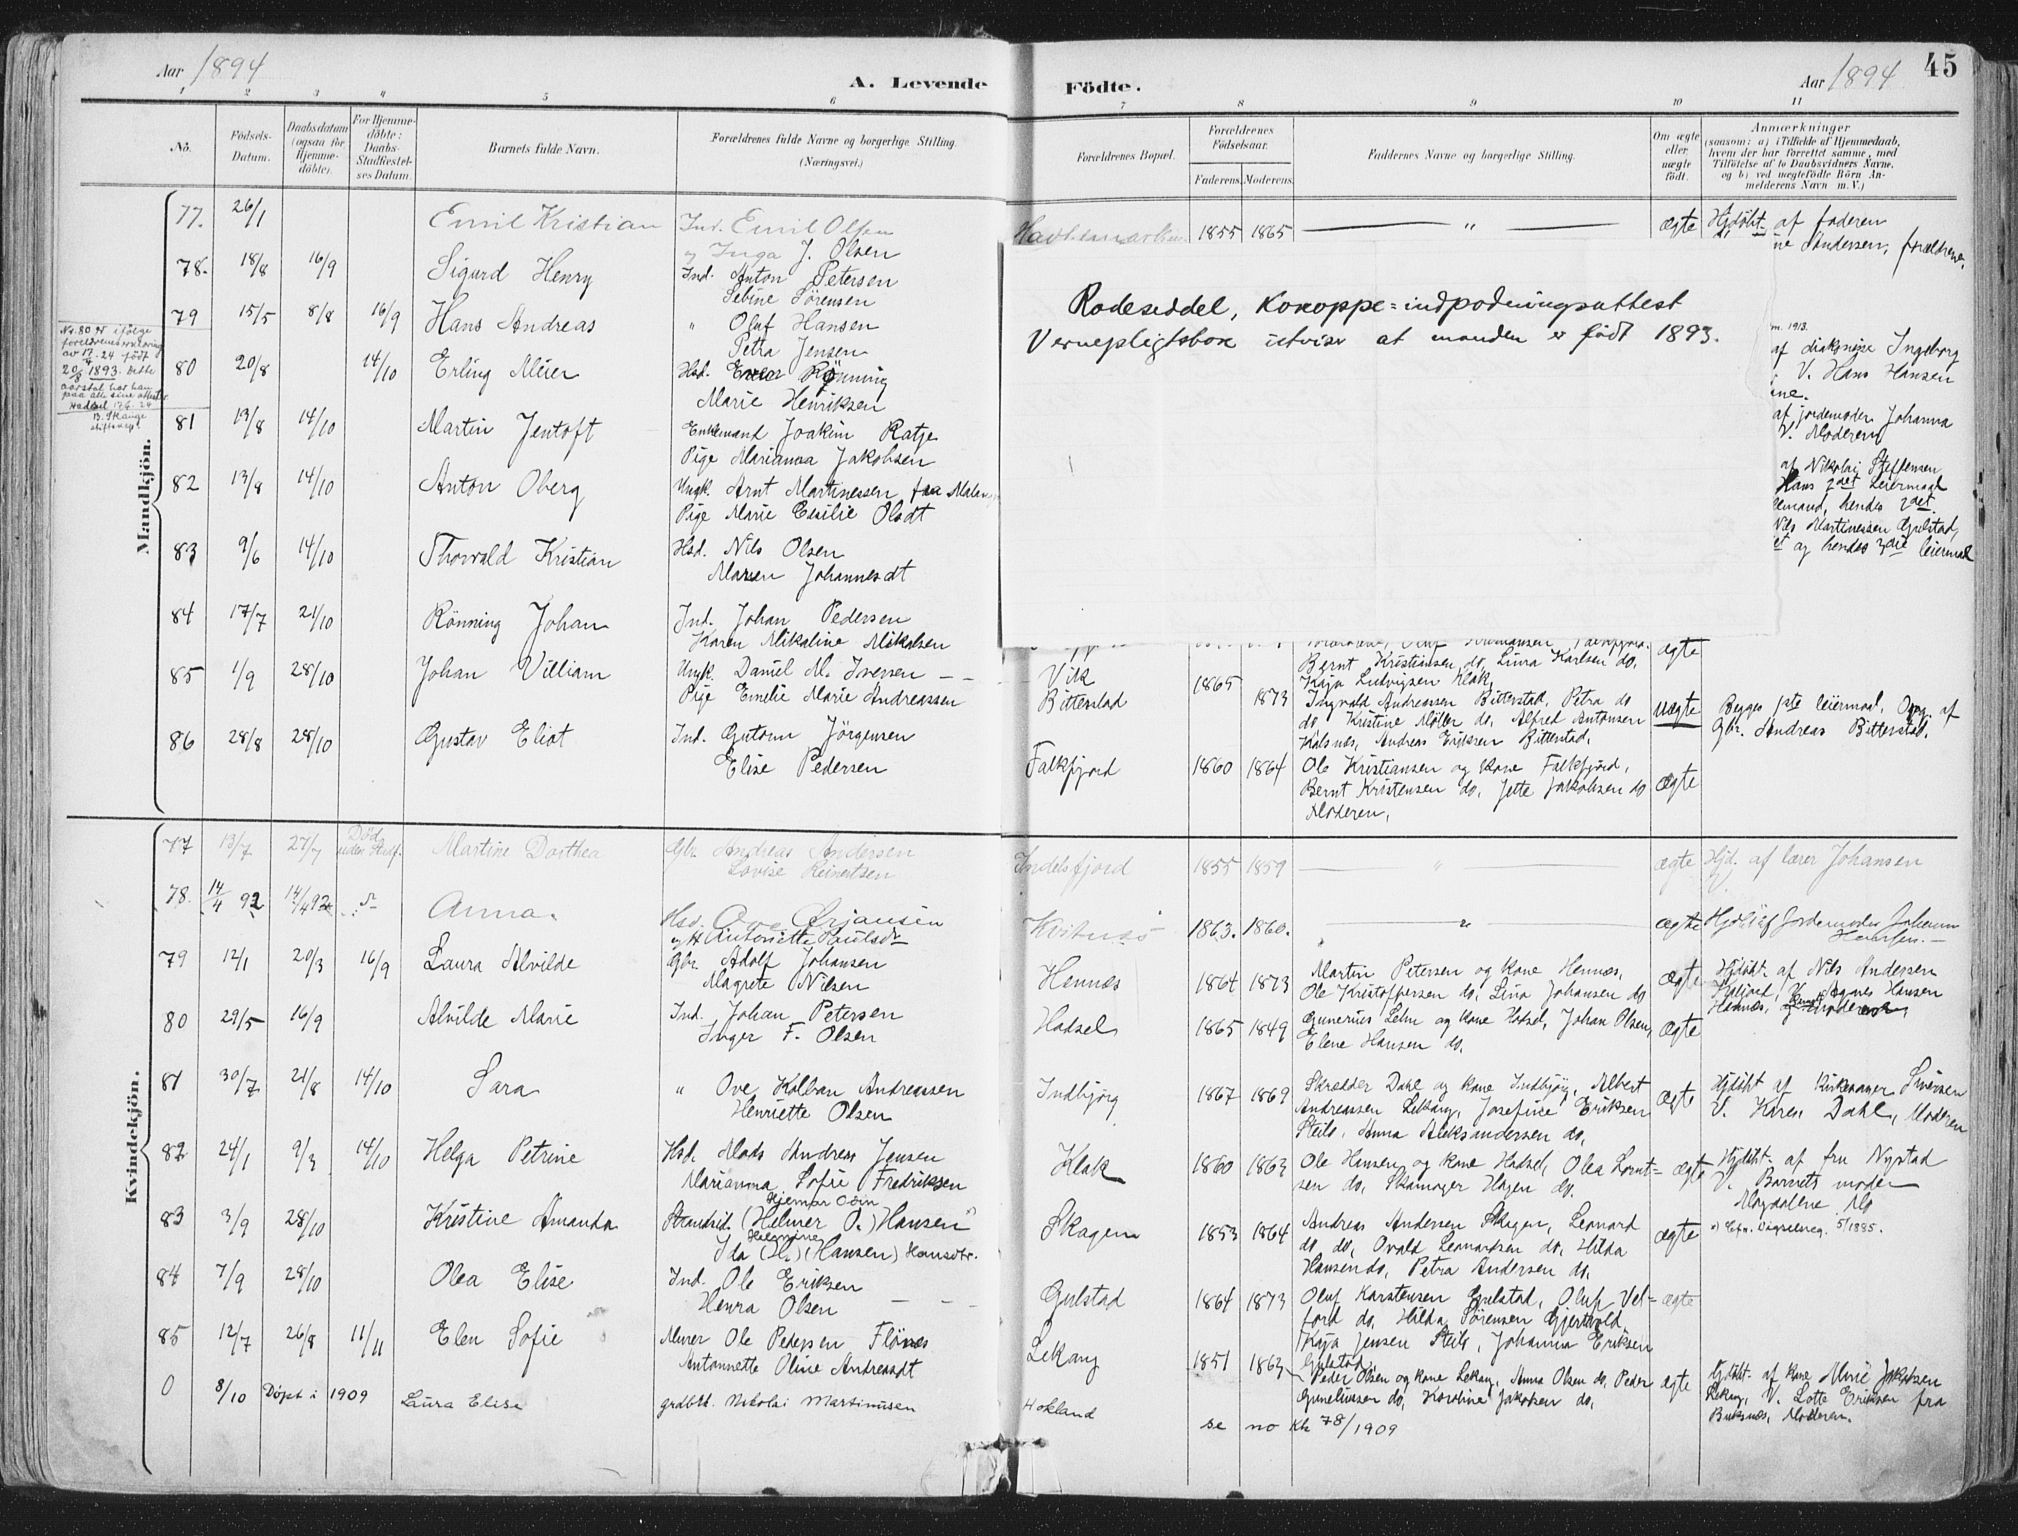 Aar 1894
A. Levende Födte.
Aar 1894 45
1 2 3 4 5 6 7 8 9 10 11
No.
Födsels-Datum.
Daabsdatum (ogsaa for Hjemme-döbte).
For Hjemme-döbte: Daabs-Stadfæstel-ses Datum.
Barnets fulde Navn.
Forældrenes fulde Navne og borgerlige Stilling. (Næringsvei.)
Forældrenes Bopæl.
Forældrenes Födselsaar.
Faderens. Moderens.
Faddernes Navne og borgerlige Stilling.
Om ægte eller uægte födt.
Anmærkninger
(saasom: a) i Tilfælde af Hjemmedaab,
hvem der har forrettet samme, med
Tilföielse af to Daabsvidners Navne,
og b) ved uægtefödte Börn An-
melderens Navn m. V.)
Mandkjön.
77. 26/1 Emil Kristian Ind. Emil Olsen 1855 1865 ægte Hjdøbt af faderen
og Inga J. Olsen ne Andersen, forældrene.
78. 18/8 16/9 Sigurd Henry Ind. Anton Petersen
Sebine Sørensen
79 15/5 8/8 16/9 Hans Andreas " Oluf Hansen
Petra Jensen
No. 80 ifølge
forældrenes erklæring
av 17/4 24 født
20/8 1893. Dette
aarstal har han
paa alle sine attester
Hadsel 17/6-24
Rodeseddel, Kokoppe-indpodningsattest
Vernepligtsbok utviser at manden er født 1893.
m. 1913.
80 20/8 14/10 Erling Meier Hsd. Rönning
Marie Henriksen
af diakonisse Ingeborg
V. Hans Hansen
ne.
81 13/8 14/10 Martin Jentoft Enkemand Joakim Ratje
Pige Marianna Jakobsen
af jordemoder Johanna
V. Moderen
82 13/8 14/10 Anton Oberg Ungk. Arnt Martinessen fra Malang
Pige Marie Cesilie Olsdt
af Nikolai Steffensen
Hans 2det Leiermaal
lemand, hendes 2det.
83 9/6 14/10 Thorvald Kristian Hsd. Nils Olsen
Maren Johannesdt
Nils Martinessen Gulstad,
et og hendes 3die leiermaal
84 17/7 21/10 Rönning Johan Ind. Johan Pedersen
Karen Mikaline Mikalsen
Bernt Kristiansen do, Lina Karlsen do, ægte
Kaja Ludvigsen Klak,
85 1/9 28/10 Johan Villiam Ungk. Daniel M. Iversen - - Vik 1865
Pige Emelie Marie Andreassen Bitterstad 1873 Ingvald Andreassen Bitterstad, Petra do
do Kristine Møller do, Alfred Antonsen uægte Begges 1ste leiermaal. Opg. af
Kalsnes, Andreas Eriksen Bitterstad. Gbr. Andreas Bitterstad.
86 28/8 28/10 Gustav Eliot Ind. Gutorm Jörgensen
Elise Pedersen Falkfjord 1860 1864 Ole Kristiansen og kone Falkfjord,
Bernt Kristensen do, Jette Jakobsen do ægte
Moderen.
Kvindekjön.
77 13/7 27/7 Död uden Stadf. Martine Dorthea Gbr. Andreas Andersen
Lovise Reinertsen Indelsfjord 1855 1859 " ægte Hjd. af lærer Johansen
78. 14/4 92 14/4 92 Anna. Hsd. Ove Ørjansen
og H Antoriette Paulsdr Kvitnes 1863. 1860. " ægte Hjdbt af Jordemoder Johanna
79 12/1 20/3 16/9 Laura Alvilde Gbr. Adolf Johansen
Magrete Nilsen Hennes 1864 1873 Martin Petersen og kone Hennes, ægte Hjdøbt. af Nils Andersen
Ole Kristoffersen do, Lina Johansen do V. Agnes Hansen
Hennes,
80 29/5 16/9 Alvilde Marie Ind. Johan Petersen
Inger F. Olsen Hadsel 1865 1849 Gunerius Lehn og kone Hadsel, Johan Olsen, ægte
Elene Hansen do.
81 30/7 21/8 14/10 Sara " Ove Kolban Andreassen
Henriette Olsen Indbjörg 1867 1869 Skrædder Dahl og kone Indbjörg, Albert ægte Hjdøbt af kirkesanger Sivertsen
Andreassen Lekang, Josefine Eriksen V. Karen Dahl, Moderen
Steilo, Anna Aleksandersen do.
82 24/1 9/3 14/10 Helga Petrine Hsd. Mads Andreas Jensen
Marianna Sofie Fredriksen Klak 1860 1863 Ole Hansen og kone Hadsel, Olea Lornt- ægte Hjdøbt. af fru Nystad
sen do, Skamager Hagen do. V. Barnets moder
Magdalene Mo
83 3/9 28/10 Kristine Amanda Strandsid. (Helmer O.) Hansen x)
Hjemar Odin
Halmine
Ida (H.) (Hansen) Hansdtr. Skagen 1853 1864 Andreas Andersen Skagen, Leonard ægte x) Efr. Vigselsreg. 5/1885.
do do, Ovald Leonardsen do, Hilda
Hansen do, Petra Andersen do.
84 7/9 28/10 Olea Elise Ind. Ole Eriksen
Henra Olsen - - - Gulstad 1864 1873 Oluf Karstensen Gulstad, Oluf Vel- ægte
ford do, Hilda Sörensen Gjertvold,
Kaja Jensen Steilo, Johanna Eriksen
Gulstad.
85 12/7 26/8 11/11 Elen Sofie Murer Ole Pedersen Flönes
Antonnette Oline Andreasdt Lekang 1851 1863 Peder Olsen og kone Lekang, Anna Olsen do, Peder ægte Hjdøbt. af kone Marie Jakobsen
Guneliussen do, Karoline Jakobsen do. Lekang, V. Lotte Eriksen fra
Buksnes, Moderen.
0 8/10 Døpt i 1909 Laura Elise grdbr. Nikolai Martinusen Hokland se no Kk 78/1909